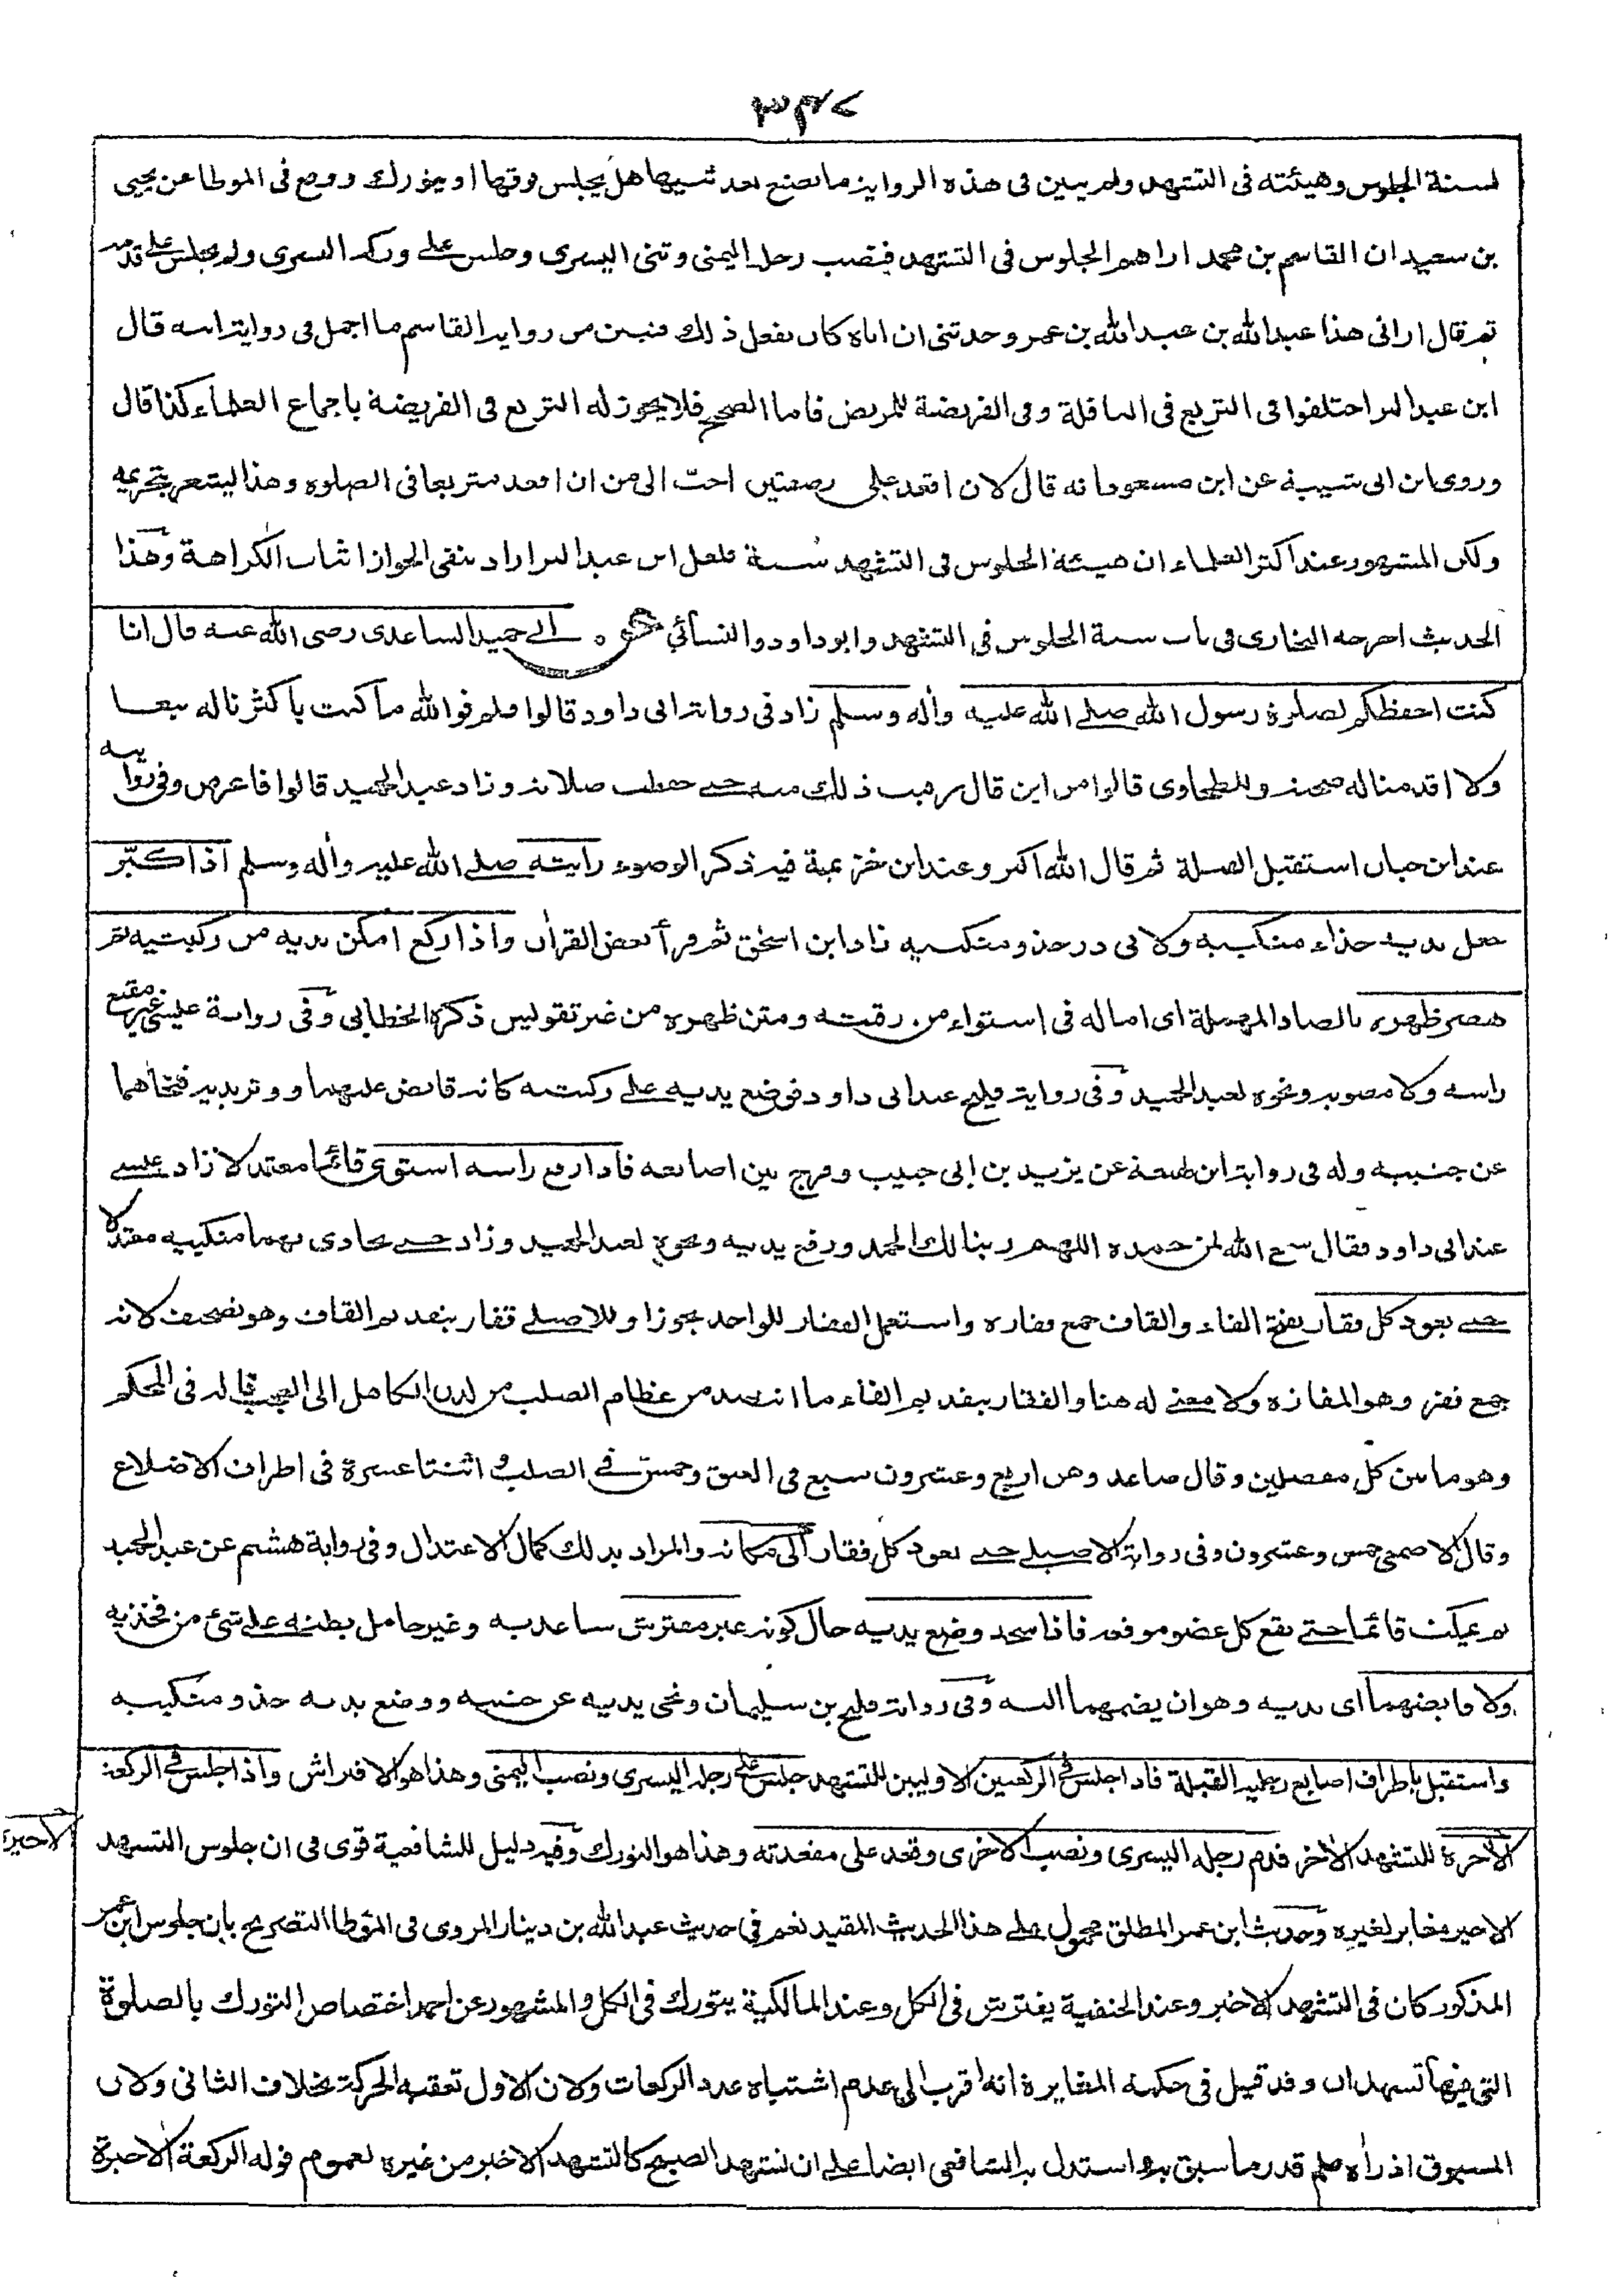 ٣٣٧
لسنة الجلوس وهيئته فى التشهد ولم يبين فى هذه الرواية ما يصنع بعد ثنيها هل يجلس فوقها او يتورك ووقع فى الموطا عن يحيى
بن سعيد ان القاسم بن محمد اراهم الجلوس فى التشهد فنصب رجله اليمنى وثنى اليسرى وجلس على وركه اليسرى ولم يجلس على قدمه
ثم قال ارانى هذا عبد الله بن عبد الله بن عمر وحدثنى ان اباه كان يفعل ذلك فتبين من رواية القاسم ما اجمل فى رواية ابنه قال
ابن عبد البر اختلفوا فى التربع فى النافلة وفى الفريضة للمريض فاما الصحيح فلا يجوز له التربع فى الفريضة باجماع العلماء كذا قال
وروى ابن ابى شيبة عن ابن مسعود انه قال لان اقعد على رضفتين احبّ الى من ان اقعد متربعا فى الصلوة وهذا يشعر بتحريمه
ولكن المشهور عند اكثر العلماء ان هيئة الجلوس فى التشهد سنة فلعل ابن عبد البر اراد بنفى الجواز اثبات الكراهة وهذا
الحديث اخرجه البخارى فى باب سنة الجلوس فى التشهد وابو داود والنسائي ابى حميد الساعدى رضى الله عنه قال انا
كنت احفظكم لصلوة رسول الله صلے الله عليه وأله وسلم زاد فى رواية ابى داود قالوا فلم فوالله ما كنت باكثرنا له تبعا
ولا اقدمنا له صحبة وللطحاوى قالوا من اين قال رقبت ذلك منه حتے حفظت صلاته وزاد عبد الحميد قالوا فاعرض وفى رواية
عند ابن حبان استقبل القبلة ثم قال الله اكبر وعند ابن خزيمة فيه ذكر الوضوء رايته صلے الله عليه وأله وسلم اذا كبّر
جعل يديه حذاء منكبيه ولابى در حذو منكبيه زاد ابن اسحٰق ثم قرأ بعض القرأن واذا ركع امكن يديه من ركبتيه ثم
هصر ظهره بالصاد المهملة اى اماله فى استواء من رقبته ومتن ظهره من غير تقويس ذكره الخطابى وفى رواية عيسى غير مقنع
راسه ولا مصوبه ونحوه لعبد الحميد وفى رواية فليح عند ابى داود فوضع يديه علے ركبتيه كانه قابض عليهما ووتر يديه فتجافاهما
عن جنبيه وله فى رواية ابن لهيعة عن يزيد بن ابى حبيب وفرج بين اصابعه فاذا رفع راسه استوى قائما معتدلا زاد عيسے
عند ابى داود فقال سمع الله لمن حمده اللهم ربنا لك الحمد ورفع يديه ونحوه لعبد الحميد وزاد حتے يحاذى بهما منكبيه معتدلا
حتے يعود كل فقار بفتح الفاء والقاف جمع فقاره واستعمل الفقار للواحد تجوزا وللاصيلے قفار بتقديم القاف وهو تصحيف لانه
جمع قفر وهو المفازه ولا معنے له هنا والفقار بتقديم الفاء ما انتضد من عظام الصلب من لدن الكاهل الى العجب قاله فى المحكم
وهو ما بين كل مفصلين وقال صاعد وهن اربع وعشرون سبع فى العنق وخمس فے الصلب و اثنتا عشرة فى اطراف الاضلاع
وقال الاصمعى خمس وعشرون وفى رواية الاصيلے حتے يعود كل فقار الى مكانه والمراد بذلك كمال الاعتدال وفى رواية هشيم عن عبد الحميد
ثم يمكث قائما حتے يقع كل عضو موقعه فاذا سجد وضع يديه حال كونه غير مفترش ساعديه وغير حامل بطنه علے شئ من فخذيه
ولا قابضهما اى يديه وهو ان يضمهما اليه وفى رواية فليح بن سليمان ونحى يديه عن جنبيه ووضع يديه حذو منكبيه
واستقبل باطراف اصابع رجليه القبلة فاذا جلس فى الركعتين الاوليين للتشهد جلس على رجله اليسرى ونصب اليمنى وهذا هو الافتراش واذا جلس فى الركعة
الأخرة للتشهد الأخر قدم رجله اليسرى ونصب الاخرى وقعد على مقعدته وهذا هو التورك وفيه دليل للشافعية قوى فى ان جلوس التشهد
الاخيرة
الاخير مغاير لغيره وحديث ابن عمر المطلق محمول علے هذا الحديث المقيد نعم فى حديث عبد الله بن دينار المروى فى الموطا التصريح بان جلوس ابن عمر
المذكور كان فى التشهد الاخير وعند الحنفية يفترش فى الكل وعند المالكية يتورك فى الكل والمشهور عن احمد اختصاص التورك بالصلوة
التى فيها تشهدان وقد قيل فى حكمة المغايرة انه اقرب الى عدم اشتباه عدد الركعات ولان الاول تعقبه الحركة بخلاف الثانى ولان
المسبوق اذ رأه علم قدر ما سبق به واستدل به الشافعى ايضا علے ان تشهد الصبح كالتشهد الاخير من غيره لعموم قوله الركعة الاخيرة